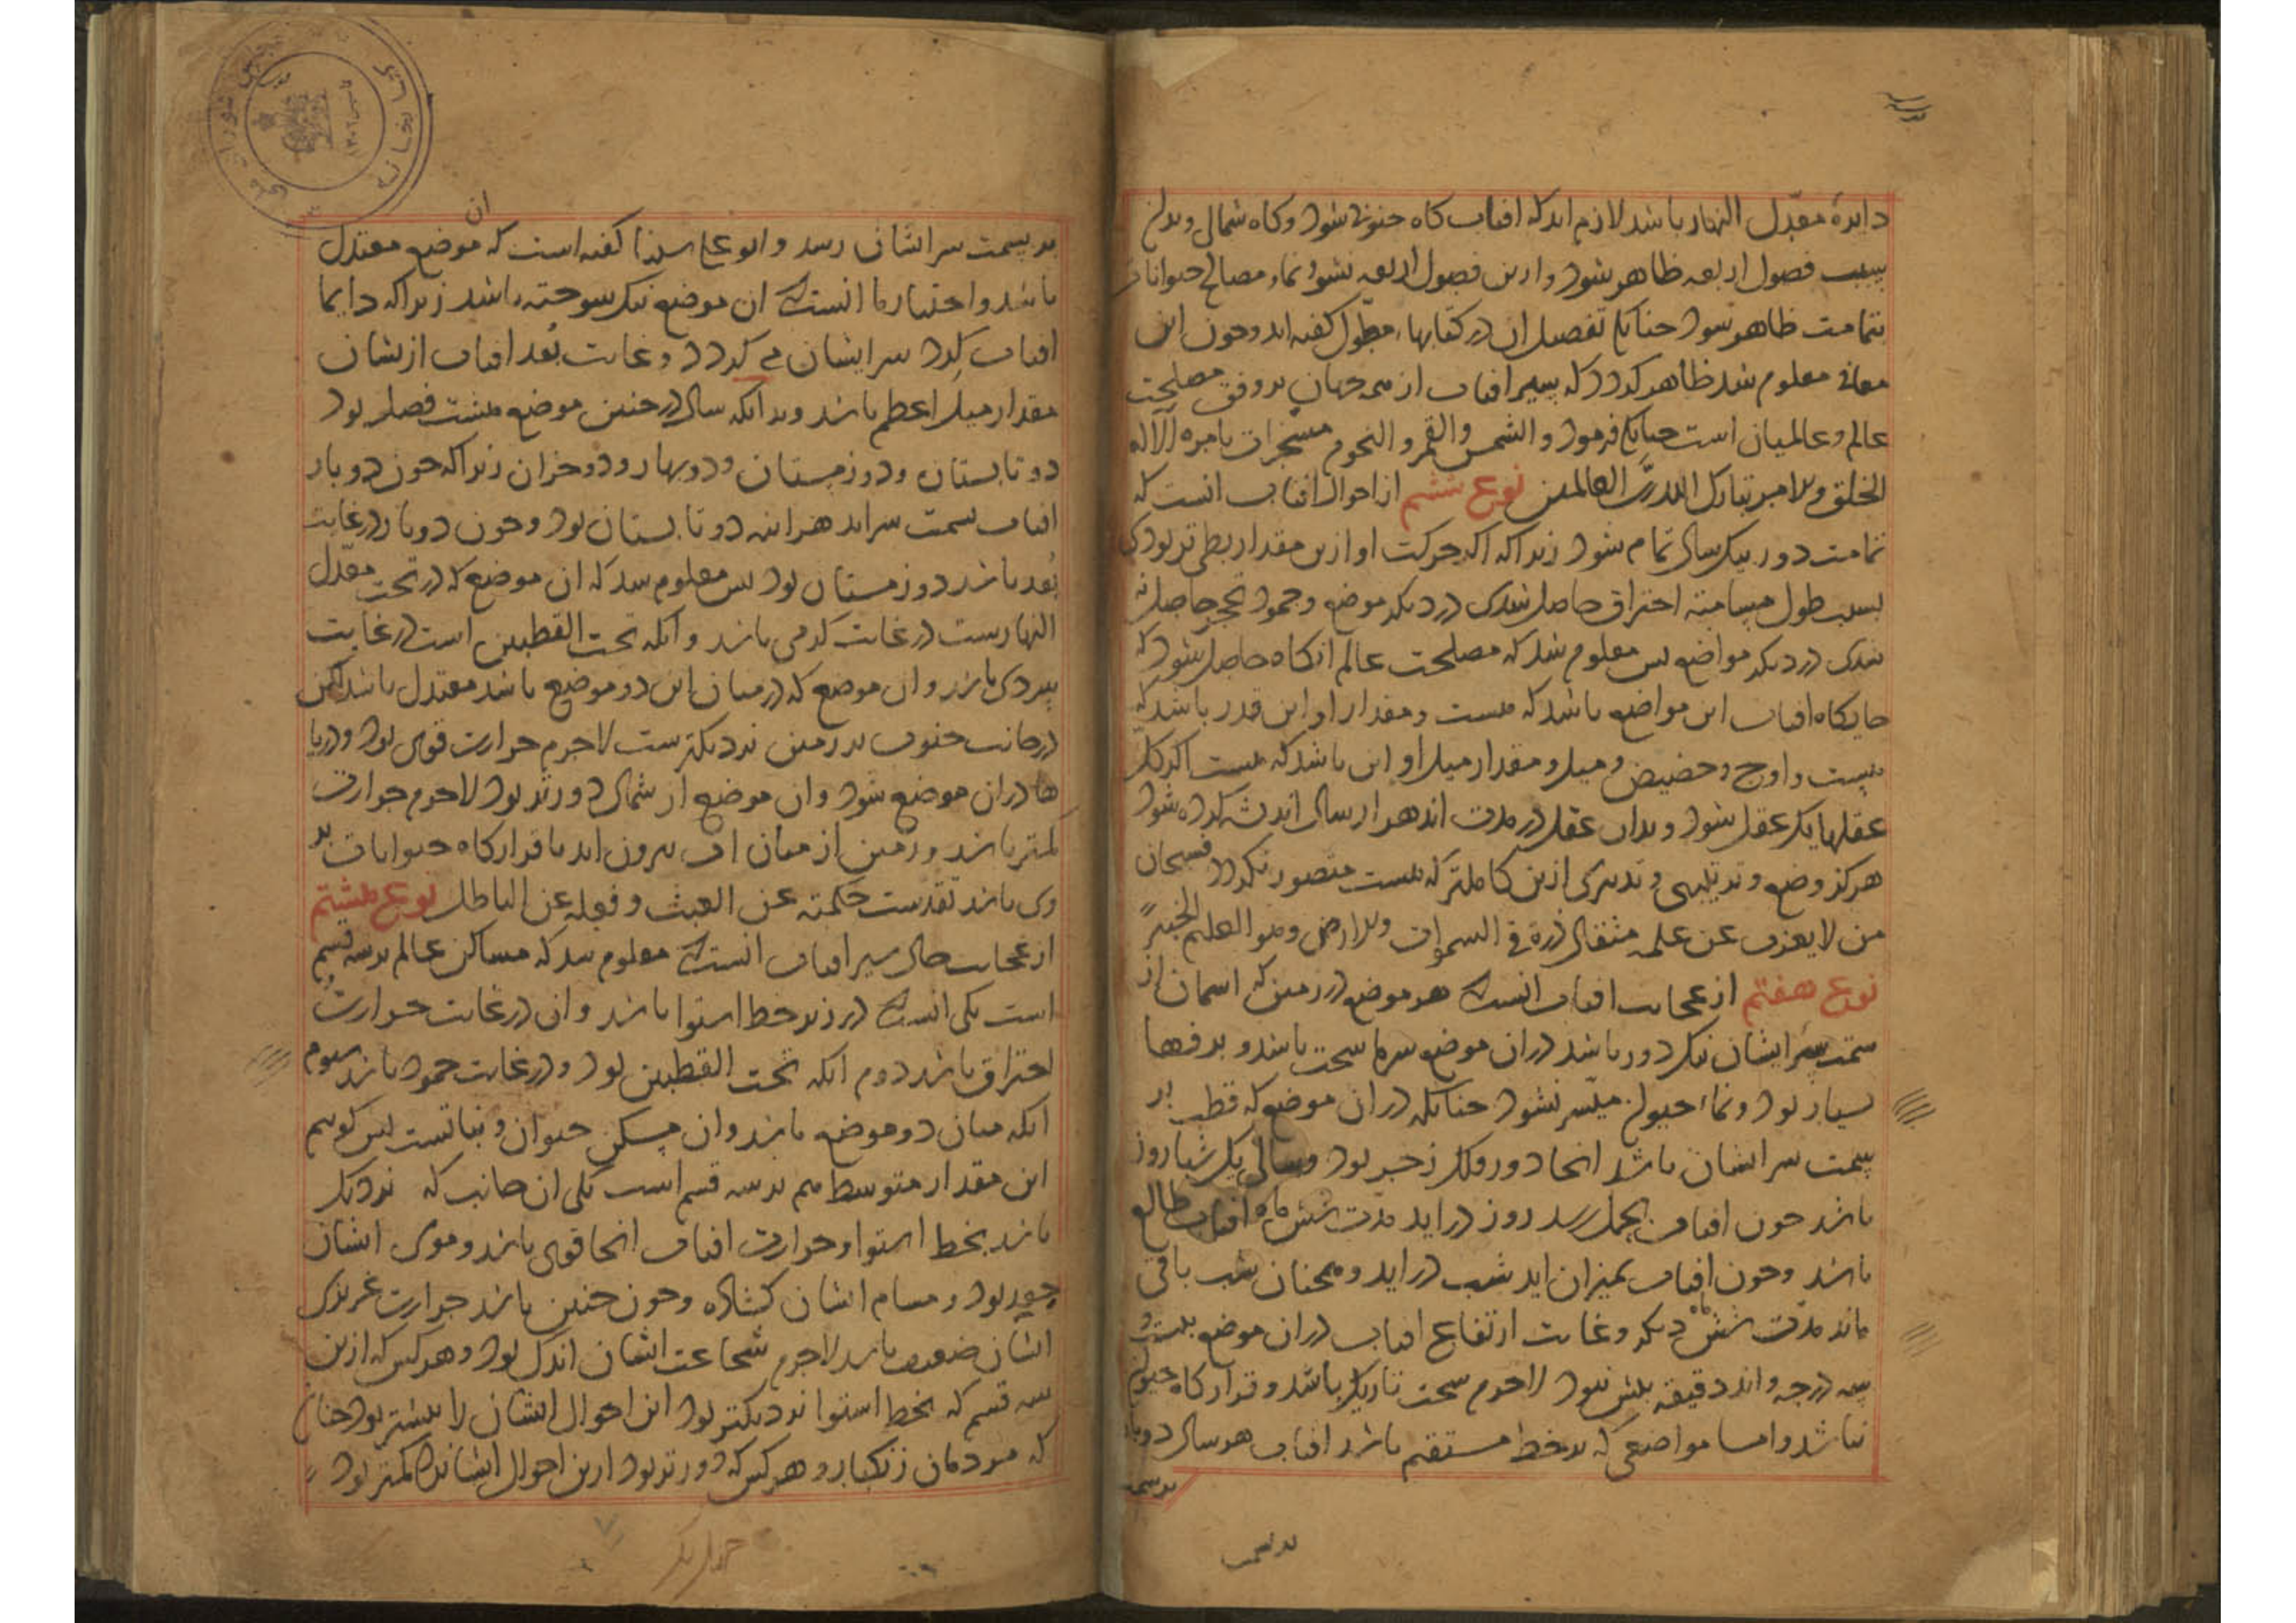 دایرهٔ معدّل النهار باشد لازم اید که افتاب کاه جنوبی شود وکاه شمالی وبدین
بسبب فصول اربعه ظاهر شود وازین فصول اربعه نشو و نما، مصالح حیوانات
بتمامت ظاهر شود چنانک تفصیل ان در کتابها، مطول کفته اند وچون این
معانی معلوم شد ظاهر کردد که سیر افتاب از همه جهان بر وفق مصلحت
عالم و عالمیان است چنانک فرمود و الشمس والقمر و النجوم مسخرات بامره الا له
الخلق والامر تبارک الله ربّ العالمین نوع ششم از احوال افتاب انست که
تمامت دور بیک سال تمام شود زیرا که اکر حرکت او ازین مقدار بطی تر بودی
بسبب طول مسامته احتراق حاصل شدی در دیکر موضع وجمود تحجر حاصل
شدی در دیکر مواضع پس معلوم شد که مصلحت عالم انکاه حاصل شود که
جایکاه افتاب این مواضع باشد که هست و مقدار او این قدر باشد که
هست و اوج و حضیض و میل و مقدار میل او این باشد که هست اکر کل
عقلها یک عقل شود و بدان عقل در مدت اند هزار سال اندیشه کرده شود
هرکز وضع و ترتیبی و تدبیری ازین کاملتر که هست متصور نکردد فسبحان
من لا یعزب عن علمه مثقال ذرة فی السموات والارض وهو العلیم الخبیر
نوع هفتم از عجایب افتاب انست که هر موضع در زمین که اسمان از
سمت سر ایشان نیک دور باشد در ان موضع سرما سخت باشد و برفها
بسیار بود ونما، حیوان میسّر نشود چنانکه در ان موضع که قطب بر
سمت سر ایشان باشد انجا دور فلک رحیی بود وسالی یک شباروز
باشد چون افتاب بحمل رسد روز دراید مدت شش ماه افتاب طالع
باشد وچون افتاب بمیزان اید شب دراید و همچنان شب باقی
ماند مدّت شش ماه دیکر وغایت ارتفاع افتاب دران موضع بیست و
سه درجه واند دقیقه بیش نبود لاجرم سخت تاریک باشد وقرارکاه حیوان
نباشد واما مواضعی که بر خط مستقیم باشد افتاب هر سال دوبار
بر سمت
بر سمت سر ایشان رسد وابو علی سینا کفته است که ان موضع معتدل
باشد واختیار ما انست که ان موضع نیک سوخته باشد زیراکه دایما
افتاب کرد سر ایشان می کردد وغایت بُعد افتاب ازیشان
مقدار میل اعظم باشد وبدانکه سال در چنین موضع هشت فصل بود
دو تابستان و دو زمستان ودو بهار ودو خزان زیراکه چون دو بار
افتاب بسمت سر اید هراینه دو تابستان بود وچون دوبار در غایت
بُعد باشد دو زمستان بود پس معلوم شد که ان موضع که در تحت معدّل
النهارست در غایت کرمی باشد وانکه تحت القطبین است در غایت
سردی باشد وان موضع که در میان این دو موضع باشد معتدل باشد لکن
در جانب جنوب بر زمین نزدیکترست لاجرم حرارت قوی بود ودریا
ها دران موضع شود وان موضع از شمال دورتر بود لاجرم حرارت
کمتر باشد وزمین از میان اب بیرون اید تا قرارکاه حیوانات بر
وی باشد تقدست حکمته عن العبث وفعله عن الباطل نوع هشتم
از عجایب حال سیر افتاب انست که معلوم شد که مساکن عالم بر سه قسم
است یکی انست که در زیر خط استوا باشد وان در غایت حرارت
احتراق باشد دوم انکه تحت القطبین بود ودر غایت جمود باشد سوم
انکه میان دو موضع باشد وان مسکن حیوان ونباتست پس کوییم
این مقدار متوسط هم بر سه قسم است یکی ان جانب که نزدیک
باشد بخط استوا وحرارت افتاب انجا قوی باشد وموی ایشان
جعد بود ومسام ایشان کشاده وچون چنین باشد حرارت غریزی
ایشان ضعیف باشد لاجرم شجاعت ایشان اندک بود وهرکس که ازین
سه قسم که بخط استوا نزدیکتر بود این احوال ایشان را بیشتر بود چنان
که مردمان زنکبار وهرکس که دورتر بود ازین احوال ایشانرا کمتر بود